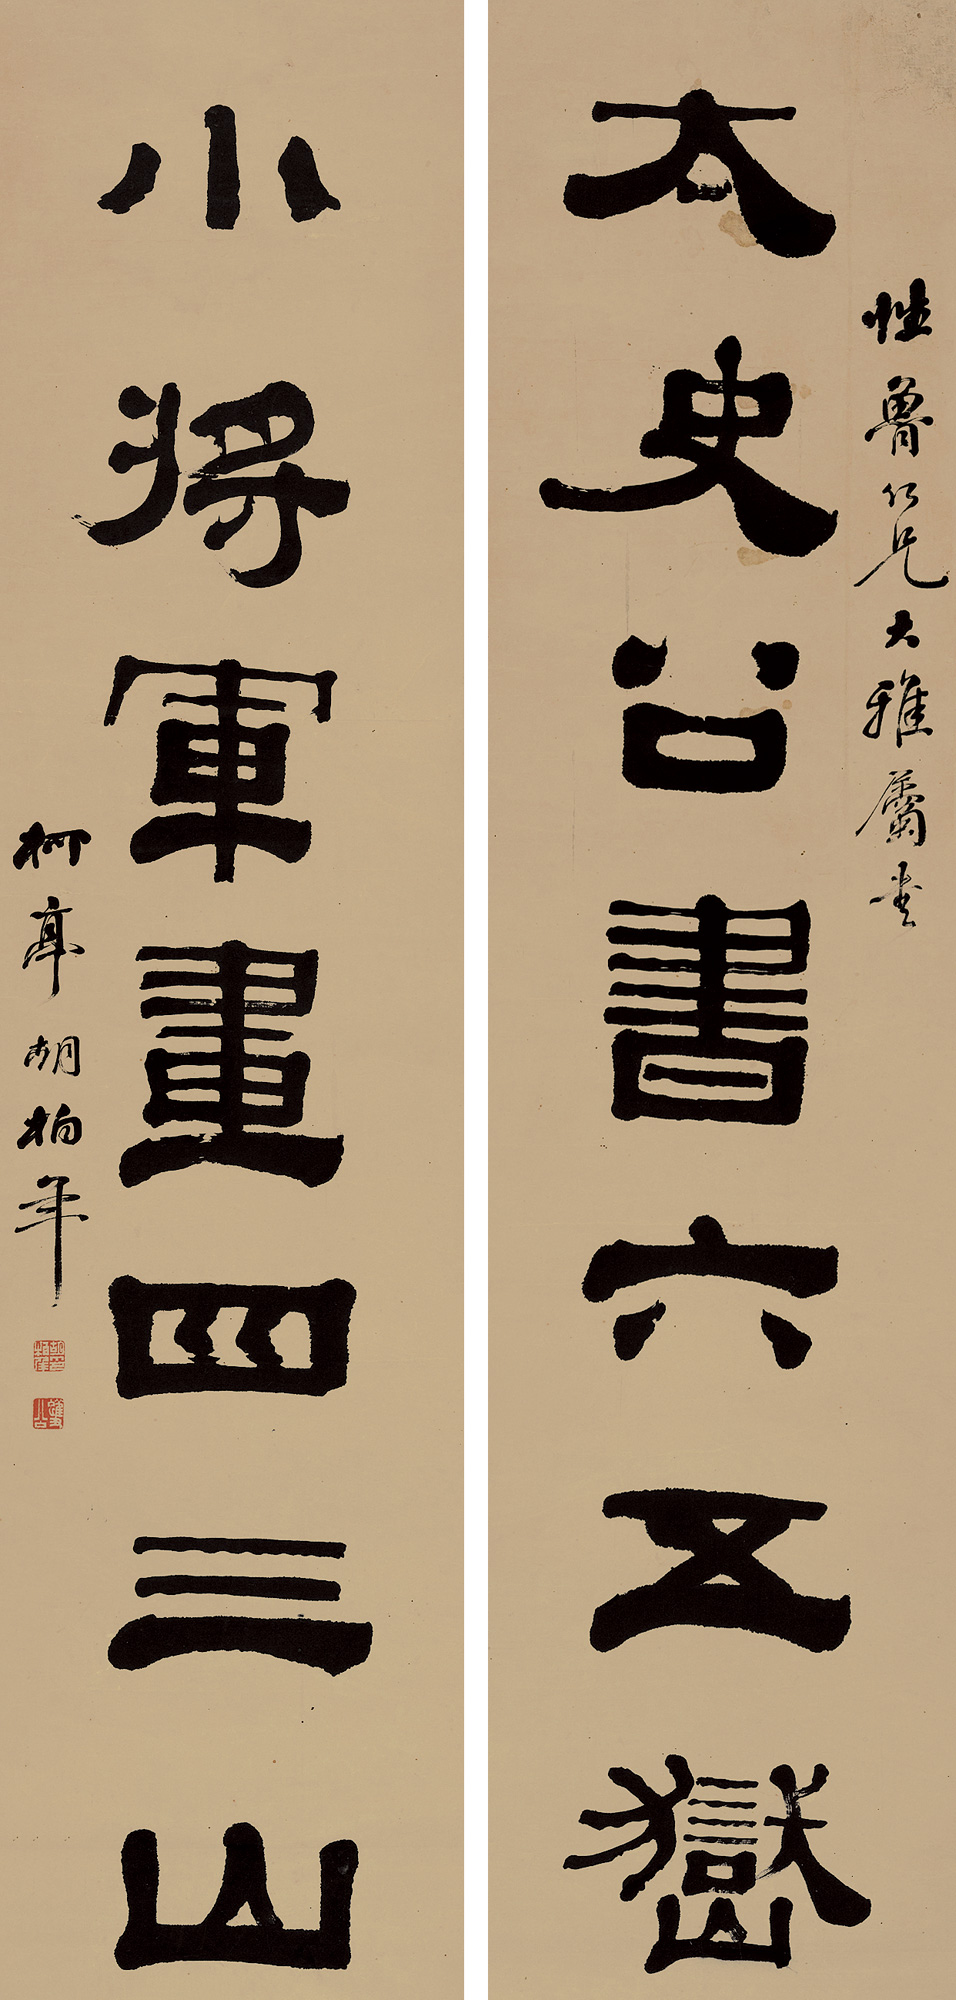 性魯仁兄大雅屬書
太史公書六五嶽
小將軍畫四三山
柳亭胡柏年